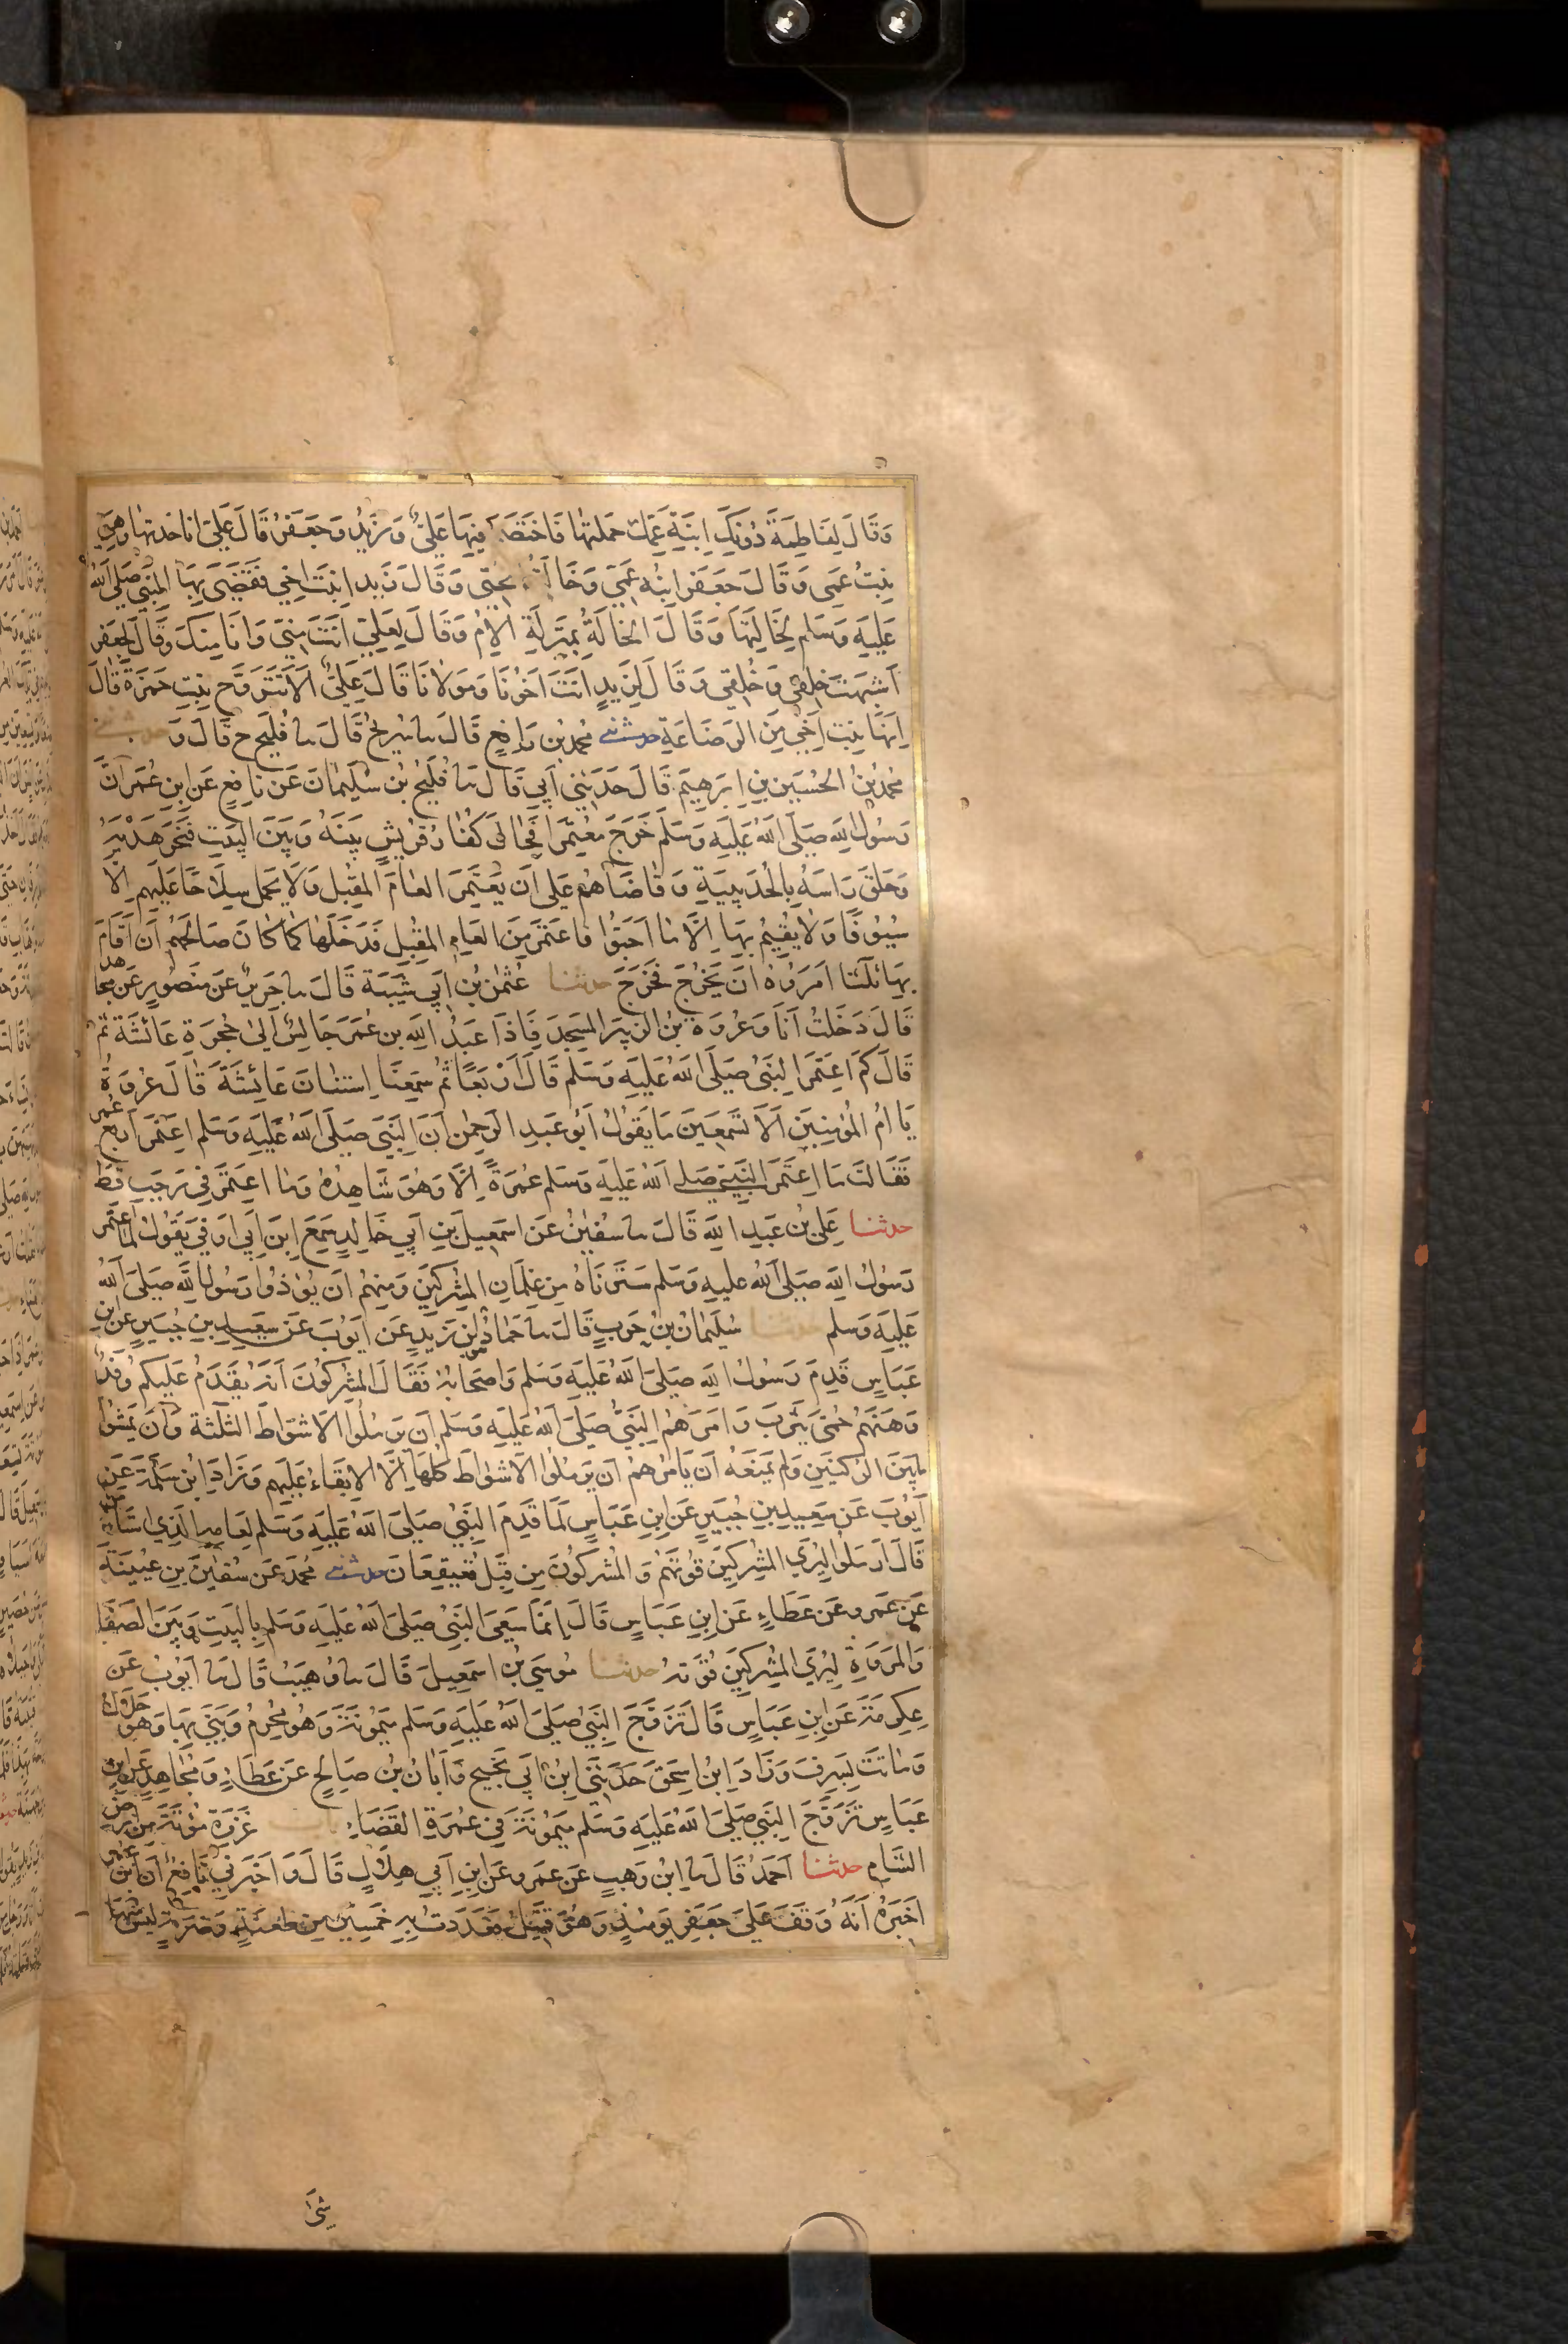 وَقَالَ لِفَاطِمَةَ دُونَكِ اِبْنَةَ عَمِّكِ حَمَلَتْهَا فَاخْتَصَمَ فِيهَا عَلِيٌّ وَزَيْدٌ وَجَعْفَرٌ قَالَ عَلِيٌّ اَنَا اَخَذْتُهَا وَهِيَ
بِنْتُ عَمِّي وَقَالَ جَعْفَر ابْنَةُ عَمِّي وَخَالَتُهَا تَحْتِي وَقَالَ زَيْد اِبْنَةُ اَخِي فَقَضَى بِهَا النَّبِيُّ صَلَّى اللهُ
عَلَيْهِ وَسَلَّم لِخَالَتِهَا وَقَالَ الْخَالَةُ بِمَنْزِلَةِ الْاُمِّ وَقَالَ لِعَلِيٍّ اَنْتَ مِنِّي وَاَنَا مِنْكَ وَقَالَ لِجَعْفَر
اَشْبَهْتَ خَلْقِي وَخُلُقِي وَقَالَ لِزَيْدٍ اَنْتَ اَخُونَا وَمَوْلَانَا قَالَ عَلِيٌّ اَلَا تَتَزَوَّج بِنْتَ حَمْزَةَ قَالَ
اِنَّهَا بِنْت اَخِي مِنَ الرَّضَاعَةِ حدثني مُحَمَّد بْن رَافِعٍ قَالَ نا سُرَيْجٌ قَالَ نا فُلَيْحٌ ح قَالَ وَ حدثني
مُحَمَّدُ بْنُ الْحُسَيْنِ بْنِ اِبْرَهِيمَ قَالَ حَدَّثَنِي اَبِي قَالَ نا فُلَيْحُ بْنُ سُلَيْمَانَ عَنْ نَافِعٍ عَنِ ابْنِ عُمَرَ اَنَّ
رَسُولَ اللهِ صَلَّى اللهُ عَلَيْهِ وَسَلَّمَ خَرَجَ مُعْتَمِرًا فَحَالَ كُفَّارُ قُرَيْشٍ بَيْنَهُ وَبَيْنَ الْبَيْتِ فَنَحَرَ هَدْيَهُ
وَحَلَقَ رَاسَهُ بِالْحُدَيْبِيَةِ وَقَاضَاهُمْ عَلَى اَنْ يَعْتَمِرَ الْعَامَ الْمُقْبِلَ وَلَا يَحْمِلَ سِلَاحًا عَلَيْهِمْ اِلَّا
سُيُوفًا وَلَا يُقِيمُ بِهَا اِلَّا مَا اَحَبُّوا فَاعْتَمَرَ مِنَ الْعَامِ الْمُقْبِلِ فَدَخَلَهَا كَمَا كَانَ صَالَحَهُمْ اَنْ اَقَامَ
بِهَا ثَلَثًا اَمَرُوهُ اَنْ يَخْرُجَ فَخَرَجَ حدثنا عُثْمَنُ بْنُ اَبِي شَيْبَةَ قَالَ نا جَرِيرٌ عَنْ مَنْصُورٍ عَنْ مُجَاهِدٍ
قَالَ دَخَلْتُ اَنَا وَعُرْوَةُ بْنُ الزُّبَيْرِ الْمَسْجِدَ فَاِذَا عَبْدُ اللهِ بْن عُمَرَ جَالِسٌ اِلَى حُجْرَةِ عَائِشَةَ ثُمَّ
قَالَ كَمِ اعْتَمَرَ النَّبِيُّ صَلَّى اللهُ عَلَيْهِ وَسَلَّم قَالَ اَرْبَعًا ثُمَّ سَمِعْنَا اِسْتِنَانَ عَائِشَةَ قَالَ عُرْوَةُ
يَا اُمَّ الْمُؤْمِنِينَ اَلَا تَسْمَعِينَ مَا يَقُولُ اَبُو عَبْدِ الرَّحْمَنِ اَنَّ النَّبِيَّ صَلَّى اللهُ عَلَيْهِ وَسَلَّم اعْتَمَرَ اَرْبَعَ عُمَرٍ
فَقَالَتْ مَا اِعْتَمَرَ النَّبِيُّ صَلَّى اللهُ عَلَيْهِ وَسَلَّم عُمْرَةً اِلَّا وَهُوَ شَاهِدُهُ وَمَا اعْتَمَرَ فِي رَجَبٍ قَطُّ
حدثنا عَلِيُّ بْنُ عَبْدِ اللهِ قَالَ نا سُفْيَنُ عَنْ اِسْمَعِيلَ بْنِ اَبِي خَالِدٍ سَمِعَ ابْنَ اَبِي اَوْفَى يَقُولُ لَمَّا اعْتَمَرَ
رَسُولُ اللهِ صَلَّى اللهُ عَلَيْهِ وَسَلَّم سَتَرْنَاهُ مِنْ غِلْمَانِ الْمُشْرِكِينَ وَمِنْهُمْ اَنْ يُؤْذُوا رَسُولَ اللهِ صَلَّى اللهُ
عَلَيْهِ وَسَلَّم حدثنا سُلَيْمَانُ بْنُ حَرْبٍ قَالَ نا حَمَّادُ بْنُ زَيْدٍ عَنْ اَيُّوبَ عَنْ سَعِيدِ بْنِ جُبَيْرٍ عَنِ ابْنِ
عَبَّاسٍ قَدِمَ رَسُولُ اللهِ صَلَّى اللهُ عَلَيْهِ وَسَلَّم وَاَصْحَابُهُ فَقَالَ الْمُشْرِكُونَ اَنَّهُ يَقْدَمُ عَلَيْكُمْ وَفْدٌ
وَهَنَهُمْ حُمَّى يَثْرِبَ وَاَمَرَهُمُ النَّبِيُّ صَلَّى اللهُ عَلَيْهِ وَسَلَّم اَنْ يَرْمُلُوا الْاَشْوَاطَ الثَّلَثَةَ وَاَنْ يَمْشُوا
مَا بَيْنَ الرُّكْنَيْنِ وَلَمْ يَمْنَعْهُ اَنْ يَامُرَهُمْ اَنْ يَرْمُلُوا الْاَشْوَاطَ كُلَّهَا اِلَّا الْاِبْقَاءُ عَلَيْهِمْ وَزَادَ ابْنُ سَلَمَةَ عَنْ
اَيُّوبَ عَنْ سَعِيدِ بْنِ جُبَيْرٍ عَنِ ابْنِ عَبَّاسٍ لَمَّا قَدِمَ النَّبِيُّ صَلَّى اللهُ عَلَيْهِ وَسَلَّم لِعَامِهِ الَّذِي اسْتَأْمَنَ
قَالَ ارْمُلُوا لِيُرِيَ الْمُشْرِكِينَ قُوَّتَهُمْ وَالْمُشْرِكُونَ مِنْ قِبَلِ قُعَيْقِعَانَ حدثني مُحَمَّد عَنْ سُفْيَنَ بْنِ عُيَيْنَةَ
عَنْ عَمْرٍو عَنْ عَطَاءٍ عَنِ ابْنِ عَبَّاسٍ قَالَ اِنَّمَا سَعَى النَّبِيُّ صَلَّى اللهُ عَلَيْهِ وَسَلَّم بِالْبَيْتِ وَبَيْنَ الصَّفَا
وَالْمَرْوَةِ لِيُرِيَ الْمُشْرِكِينَ قُوَّتَهُ حدثنا مُوسَى بْنُ اِسْمَعِيلَ قَالَ نا وُهَيْبُ قَالَ نا اَيُّوبُ عَنْ
عِكْرِمَةَ عَنِ ابْنِ عَبَّاسٍ قَالَ تَزَوَّجَ النَّبِيُّ صَلَّى اللهُ عَلَيْهِ وَسَلَّم مَيْمُونَةَ وَهُوَ مُحْرِمٌ وَبَنَى بِهَا وَهُوَ حَلَالٌ
وَمَاتَتْ بِسَرِفَ وَزَادَ ابْنُ اِسْحَقَ حَدَّثَنِي ابْنُ اَبِي نَجِيحٍ وَاَبَانُ بْنُ صَالِحٍ عَنْ عَطَاءٍ وَمُجَاهِدٍ عَنِ ابْنِ
عَبَّاسٍ تَزَوَّجَ النَّبِيُّ صَلَّى اللهُ عَلَيْهِ وَسَلَّم مَيْمُونَةَ فِي عُمْرَةِ الْقَضَاءِ باب غَزْوَةُ مُؤْتَةَ مِنْ اَرْضِ
الشَّامِ حدثنا اَحْمَدُ قَالَ نا ابْنُ وَهْبٍ عَنْ عَمْرٍو عَنِ ابْنِ اَبِي هِلَالٍ قَالَ وَاَخْبَرَنِي نَافِعٌ اَنَّ ابْنَ عُمَرَ
اَخْبَرَهُ اَنَّهُ وَقَفَ عَلَى جَعْفَرٍ يَوْمَئِذٍ وَهُوَ قَتِيلٌ فَعَدَدْتُ بِهِ خَمْسِينَ مِنْ طَعْنَةٍ وَضَرْبَةٍ لَيْسَ مِنْهَا
شَيْءٌ